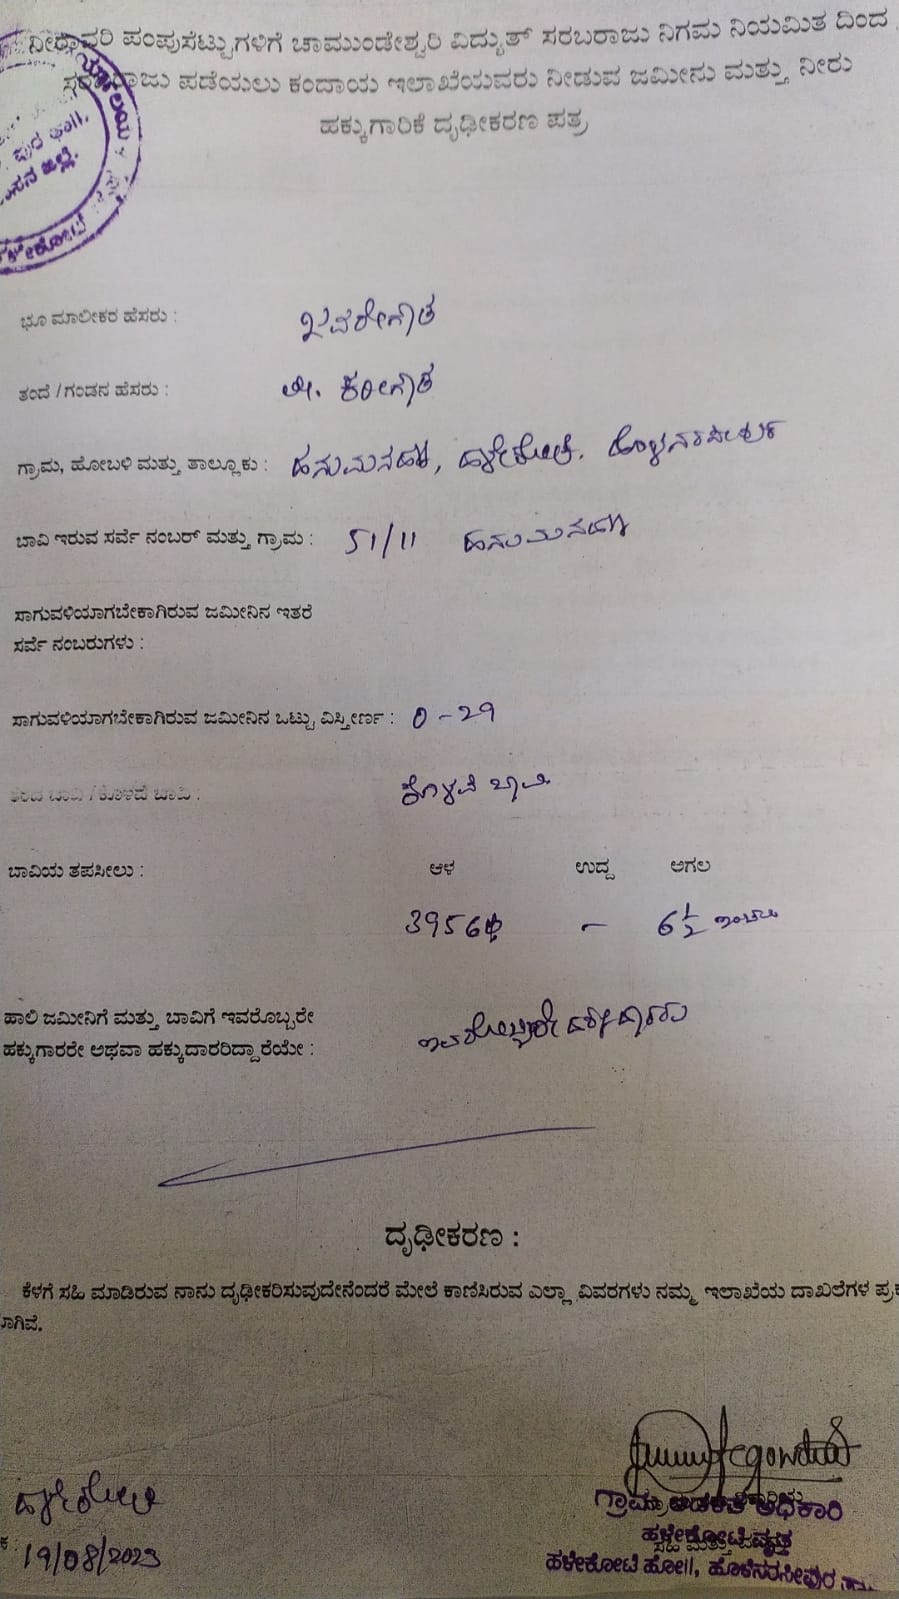 ನೀರಾವರಿ ಪಂಪುಸೆಟ್ಟುಗಳಿಗೆ ಚಾಮುಂಡೇಶ್ವರಿ ವಿದ್ಯುತ್ ಸರಬರಾಜು ನಿಗಮ ನಿಯಮಿತ ದಿಂದ
ಸರಬರಾಜು ಪಡೆಯಲು ಕಂದಾಯ ಇಲಾಖೆಯವರು ನೀಡುವ ಜಮೀನು ಮತ್ತು ನೀರು
ಹಕ್ಕುಗಾರಿಕೆ ದೃಢೀಕರಣ ಪತ್ರ
ಭೂ ಮಾಲೀಕರ ಹೆಸರು : ಜವರೇಗೌಡ
ತಂದೆ / ಗಂಡನ ಹೆಸರು : ಕರೀಗೌಡ
ಗ್ರಾಮ, ಹೋಬಳಿ ಮತ್ತು ತಾಲ್ಲೂಕು : ಹನುಮನಹಳ್ಳಿ, ಹಳೇಕೋಟೆ, ಹೊಳೆನರಸೀಪುರ
ಬಾವಿ ಇರುವ ಸರ್ವೆ ನಂಬರ್ ಮತ್ತು ಗ್ರಾಮ : 51/11 ಹನುಮನಹಳ್ಳಿ
ಸಾಗುವಳಿಯಾಗಬೇಕಾಗಿರುವ ಜಮೀನಿನ ಇತರೆ
ಸರ್ವೆ ನಂಬರುಗಳು :
ಸಾಗುವಳಿಯಾಗಬೇಕಾಗಿರುವ ಜಮೀನಿನ ಒಟ್ಟು ವಿಸ್ತೀರ್ಣ : 0-29
ಬಾವಿ / ಕೊಳವೆ ಬಾವಿ : ಕೊಳವೆ ಬಾವಿ
ಬಾವಿಯ ತಪಸೀಲು : ಆಳ ಉದ್ದ ಅಗಲ
– 6½ ಇಂಚು
ಹಾಲಿ ಜಮೀನಿಗೆ ಮತ್ತು ಬಾವಿಗೆ ಇವರೊಬ್ಬರೇ
ಹಕ್ಕುಗಾರರೇ ಅಥವಾ ಹಕ್ಕುದಾರರಿದ್ದಾರೆಯೇ : ಇವರೊಬ್ಬರೇ ಹಕ್ಕುದಾರರು
ದೃಢೀಕರಣ :
ಕೆಳಗೆ ಸಹಿ ಮಾಡಿರುವ ನಾನು ದೃಢೀಕರಿಸುವುದೇನೆಂದರೆ ಮೇಲೆ ಕಾಣಿಸಿರುವ ಎಲ್ಲಾ ವಿವರಗಳು ನಮ್ಮ ಇಲಾಖೆಯ ದಾಖಲೆಗಳ ಪ್ರಕ
ಾಗಿವೆ.
ಹಳೇಕೋಟೆ
19/08/2023
ಗ್ರಾಮ ಆಡಳಿತ ಅಧಿಕಾರಿ
ಹಳೇಕೋಟೆ ವೃತ್ತ
ಹಳೇಕೋಟೆ ಹೋ||, ಹೊಳೆನರಸೀಪುರ ತಾ